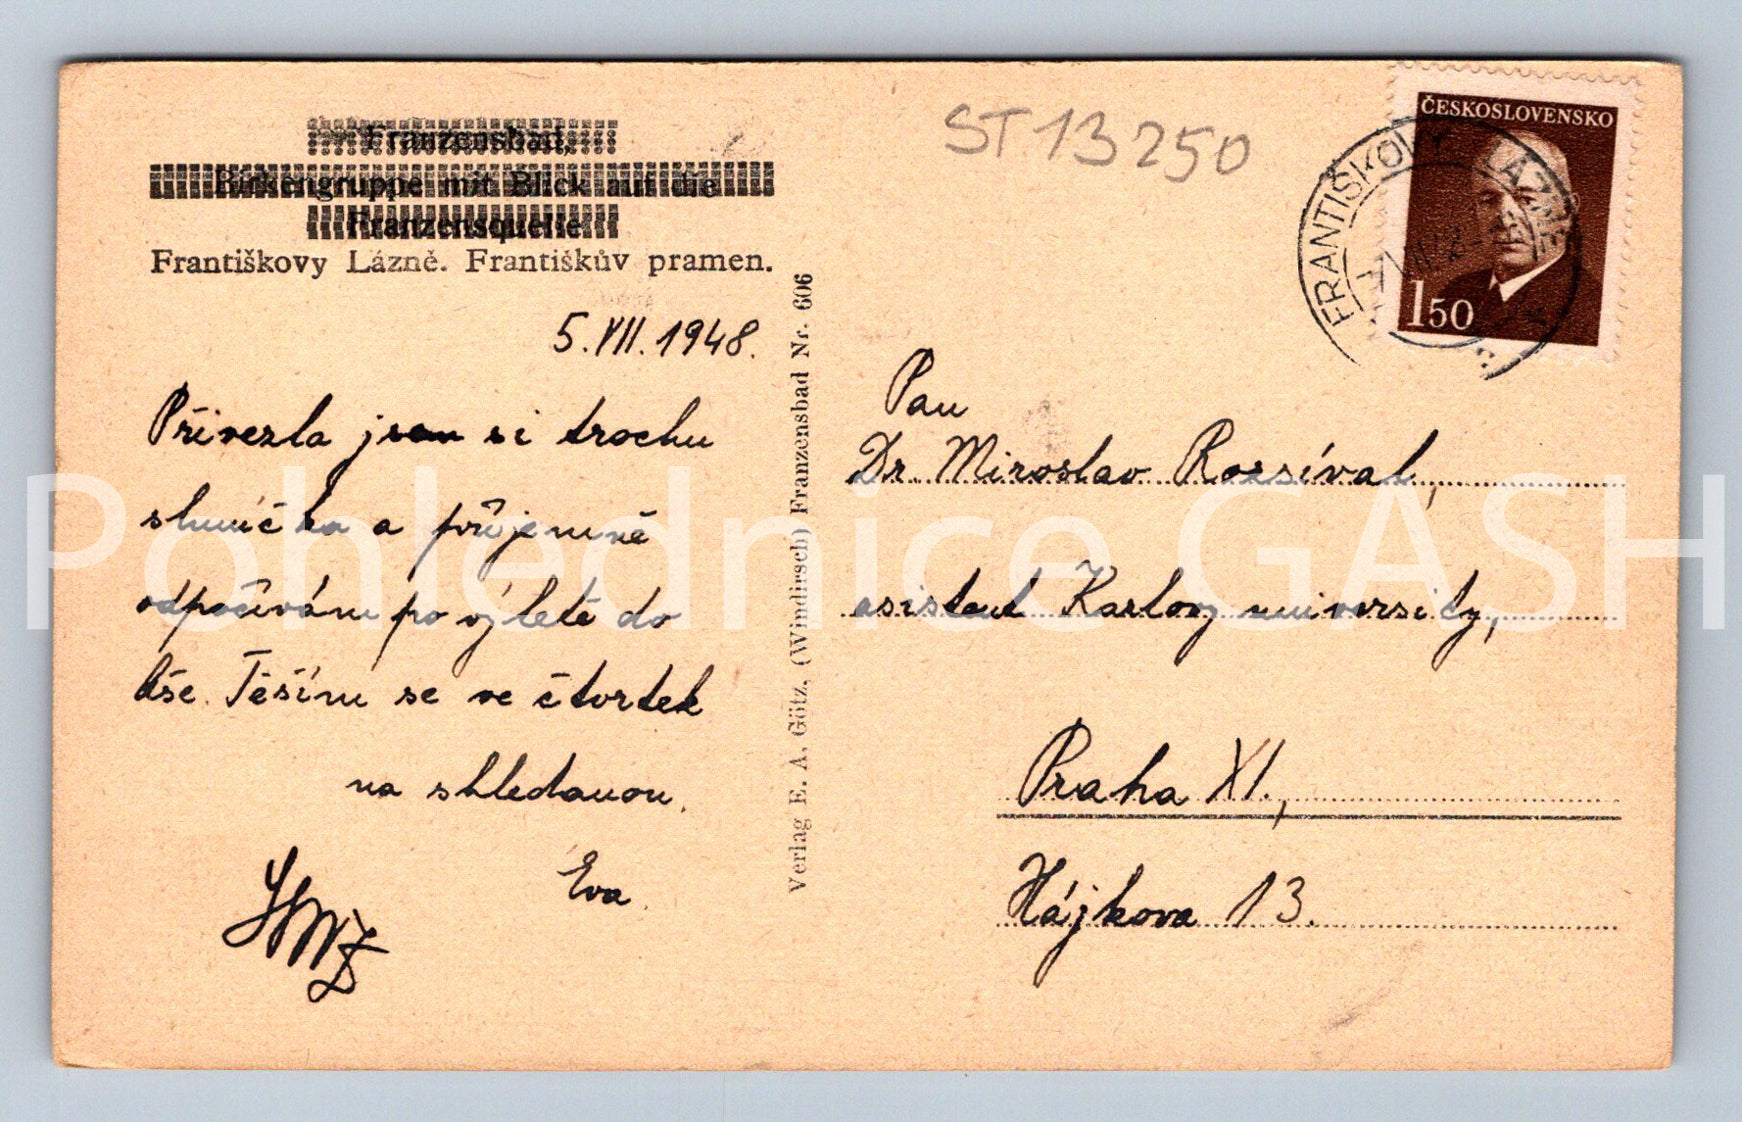 Franzensbad,
Birkengruppe mit Blick auf die
Franzensquelle
Františkovy Lázně. Františkův pramen.
5.VII.1948.
Přivezla jsem si trochu
sluníčka a příjemně
odpočívám po výletě do
Aše. Těším se ve čtvrtek
na shledanou.
Eva
Verlag E. A. Götz, (Windirsch) Franzensbad Nr. 606
ST 13250
ČESKOSLOVENSKO
1 50
FRANTIŠKOVY LÁZNĚ
Pan
Dr. Miroslav Rozsíval,
asistent Karlovy university,
Praha XI.,
Hájkova 13.
Pohlednice GASH